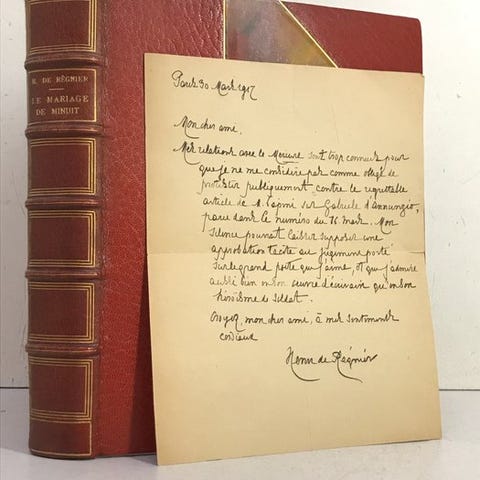 H. DE RÉGNIER
LE MARIAGE
DE MINUIT
Paris 30 Mars 1917
Mon cher ami,
Mes relations avec le Mercure sont trop connues pour
que je ne me considère pas comme obligé de
protester publiquement contre le regrettable
article de M. sur Gabriele d'Annunzio,
paru dans le numéro du 16 mars. Mon
silence pourrait laisser supposer une
approbation tacite au jugement porté
sur le grand poète que j'aime, et que j'admire
aussi bien en son œuvre d'écrivain qu'en son
héroïsme de soldat.
Croyez, mon cher ami, à mes sentiments
cordiaux
Henri de Régnier